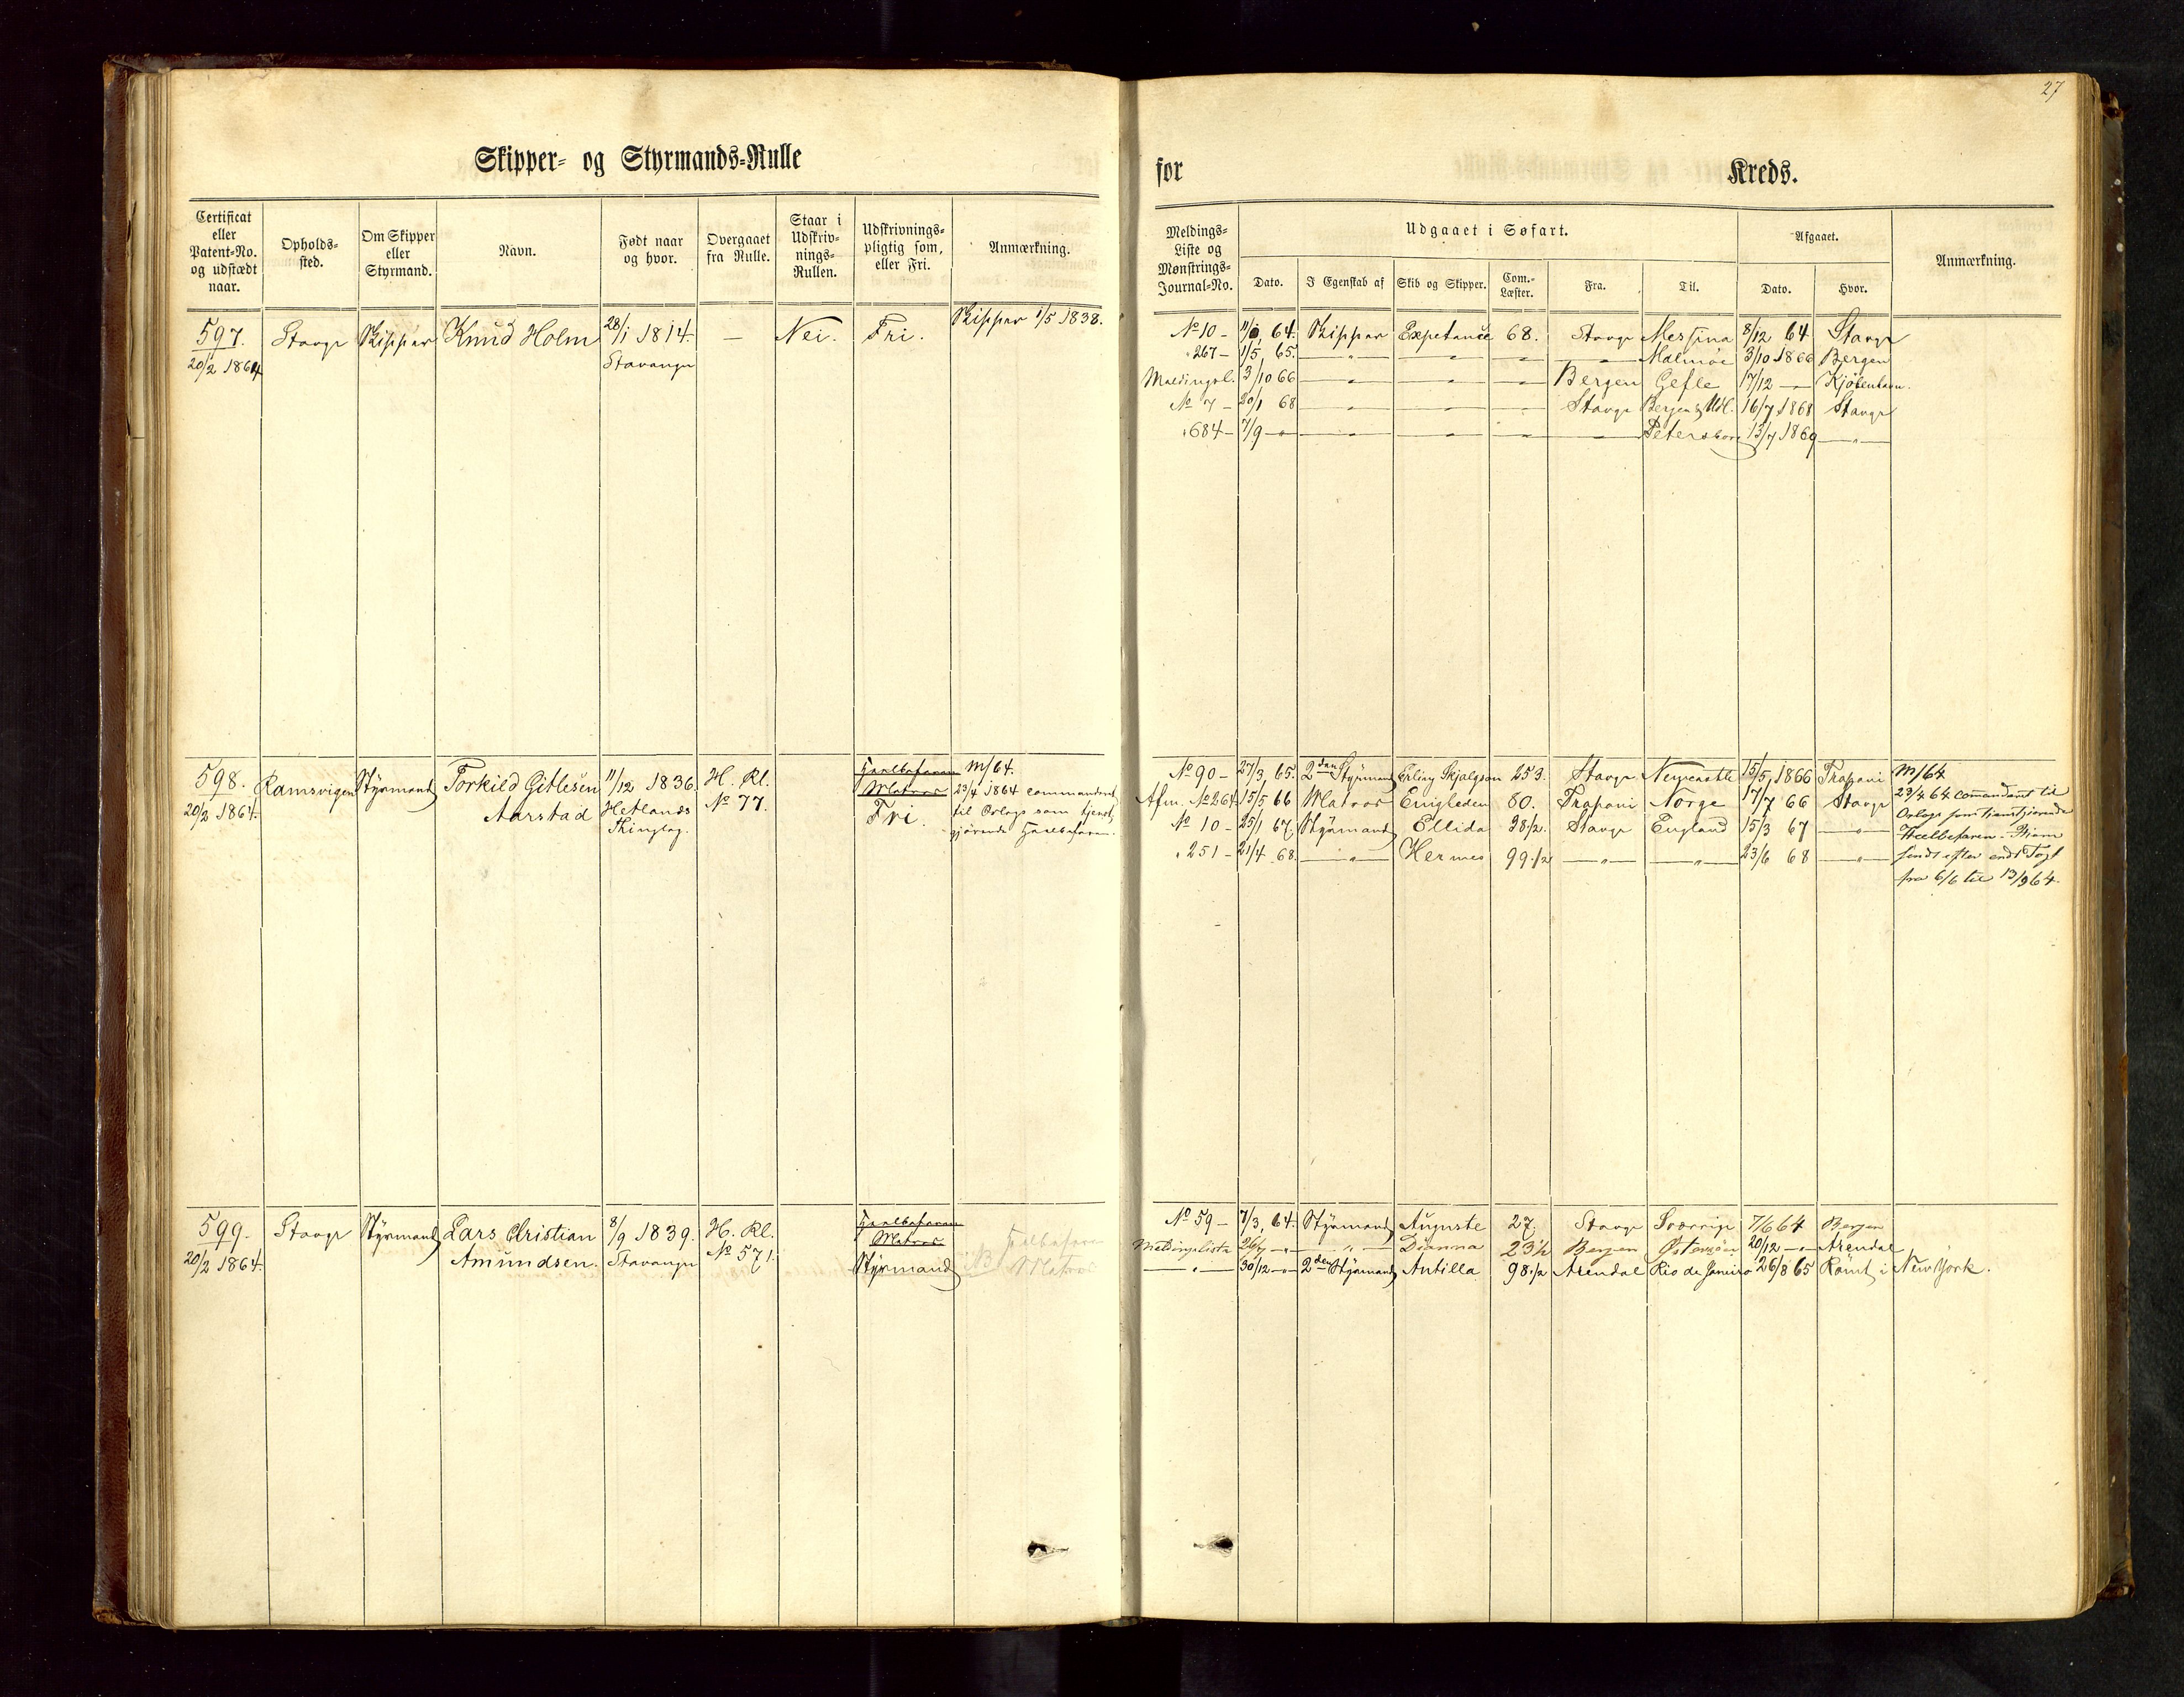 27
Skipper- og Styrmands-Rulle
for Kreds.
Certificat eller Patent-No. og udstædt naar.
Opholdssted.
Om Skipper eller Styrmand.
Navn.
Født naar og hvor.
Overgaaet fra Rulle.
Staar i Udskrivnings-Rullen.
Udskrivningspligtig som, eller Fri.
Anmærkning.
Meldings-Liste og Mønstrings-Journal-No.
Udgaaet i Søfart.
Dato.
I Egenskab af
Skib og Skipper.
Com.-Læster.
Fra.
Til.
Afgaaet.
Dato.
Hvor.
Anmærkning.
597. Stavgr Skipper Knud Holm 28/1 1814. — Nei. Fri. Skipper 1/5 1838.
20/2 1864 Stavanger
No 10 - 64. Skipper Expetance 68. Stavgr Messina 8/12 64 Stavgr
" 267 - 1/5 65. — " — — " — — " — — " — Malmöe 3/10 1866 Bergen
Meldingsl. 3/10 66 — " — — " — — " — Bergen Gefle 17/12 — " — Kjöbenhavn.
No 7 - 20/1 68 — " — — " — — " — Stavgr Bergen & Udl. 16/7 1868 Stavgr
" 684 - 7/9 — " — — " — — " — — " — — " — Petersborg 13/7 1869 — " —
598. Ramsvigen Styrmand Torkild Gitlesen 11/12 1836. H. Rl. Heelbefaren M/64.
20/2 1864. Aarstad Hetlands No 77. Matros 23/4 1864 commanderet
Thinglag. Fri. til Orlogs som tjenst-
gjörende Heelbefaren.
No 90 - 27/3 65. 2den Styrmand Erling Skjalgson 253. Stavgr Newcastle 15/5 1866 Trapani M/64
Afm. No 264 15/5 66 Matros Enigheden 80. Trapani Norge 17/7 66 Stavgr 23/4 64 commanderet til
No 10 - 25/1 67 Styrmand Ellida 38 1/2. Stavgr England 15/3 67 — " — Orlogs som tjenstgjörende
" 251 - 21/4 68. — " — Hermes 99 1/2 — " — — " — 23/6 68 — " — Heelbefaren - Hjem
sendt efter endt Togt
fra 6/6 til 13/9 64.
599. Stavgr Styrmand Lars Christian 8/9 1839. H. Rl. Heelbefaren
20/2 1864. Amundsen. Stavanger No 571. Matros
Styrmand NB Heelbefaren
Matros
No 59 - 7/3 64. Styrmand Auguste 27. Stavgr Sverrige 7/6 64 Bergen
Meldingsliste — " — — " — Dianna 23 1/2 Bergen Östersöen 20/12 — " — Arendal
— " — 30/12 — " — 2den Styrmand Antilla 98 1/2 Arendal Rio de Janeiro 26/8 65 Römt i New York.